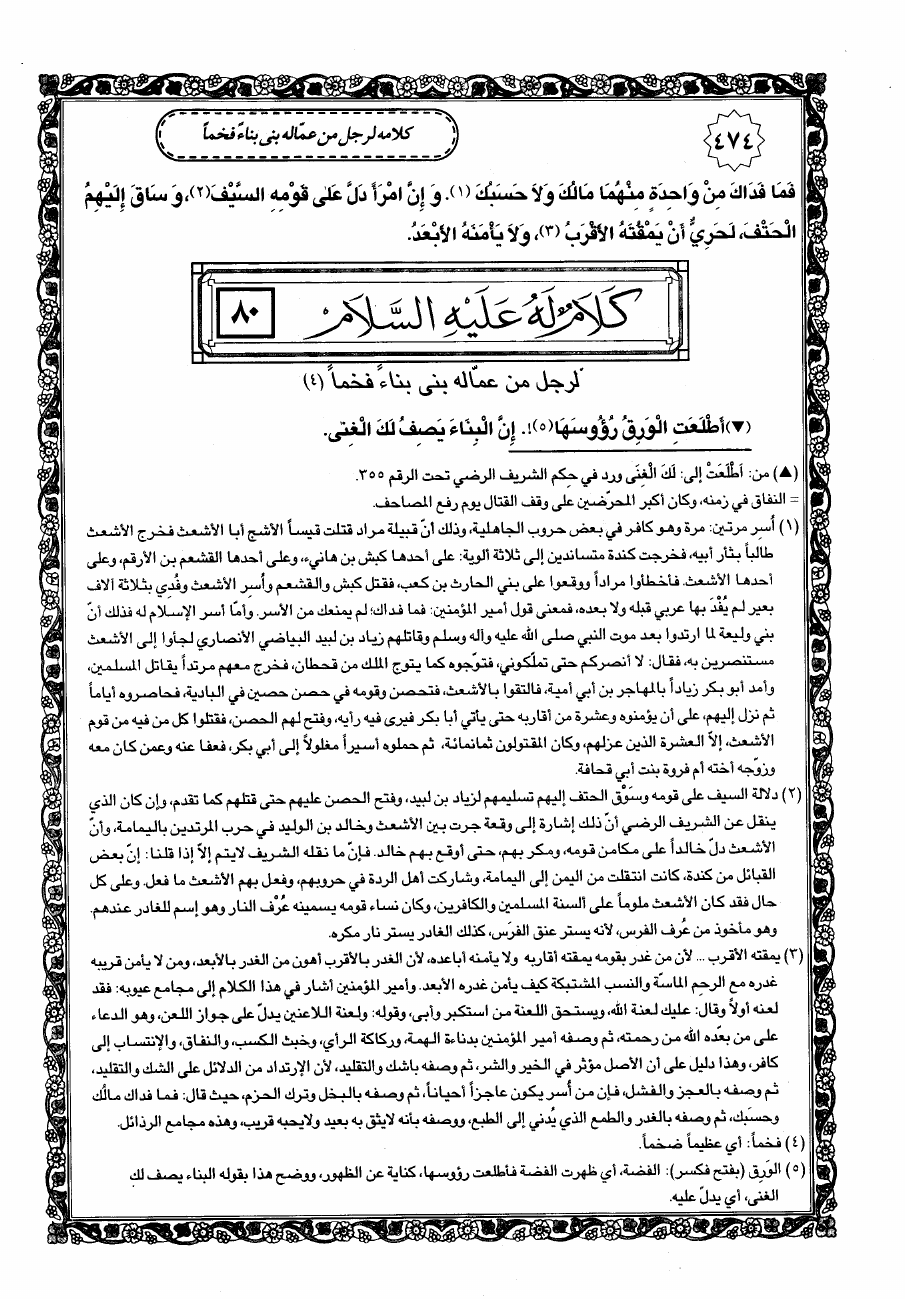 ٤٧٤
كلامه لرجل من عمّاله بنى بناءً فخماً
فَمَا فَدَاكَ مِنْ وَاحِدَةٍ مِنْهُمَا مَالُكَ وَلاَ حَسَبُكَ (١). وَ إِنَّ امْرَأً دَلَّ عَلىٰ قَوْمِهِ السَّيْفَ(٢)، وَ سَاقَ إِلَيْهِمُ
الْحَتْفَ، لَحَرِيٌّ أَنْ يَمْقُتَهُ الأَقْرَبُ (٣)، وَلاَ يَأْمَنَهُ الأَبْعَدُ.
كَلَامٌ لَهُ عَلَيْهِ السَّلَام
٨٠
لرجل من عمّاله بنى بناءً فخماً (٤)
(▼) أَطْلَعَتِ الْوَرِقُ رُؤُوسَهَا(٥)!. إِنَّ الْبِنَاءَ يَصِفُ لَكَ الْغِنى.
(▲) من: أَطْلَعَتْ إلى: لَكَ الْغِنَى ورد في حِكم الشريف الرضي تحت الرقم ٣٥٥.
= النفاق في زمنه، وكان أكبر المحرّضين على وقف القتال يوم رفع المصاحف.
(١) أُسر مرتين: مرة وهو كافر في بعض حروب الجاهلية، وذلك أنّ قبيلة مراد قتلت قيساً الأشج أبا الأشعث فخرج الأشعث
طالباً بثأر أبيه، فخرجت كندة متساندين إلى ثلاثة ألوية: على أحدها كبش بن هانيء، وعلى أحدها القشعم بن الأرقم، وعلى
أحدها الأشعث. فأخطأوا مراداً ووقعوا على بني الحارث بن كعب، فقتل كبش والقشعم وأُسر الأشعث وفُدي بثلاثة آلاف
بعير لم يُفْدَ بها عربي قبله ولا بعده، فمعنى قول أمير المؤمنين: فما فداك؛ لم يمنعك من الأسر. وأمّا أسر الإسلام له فذلك أنّ
بني وليعة لما ارتدوا بعد موت النبي صلى الله عليه وآله وسلم وقاتلهم زياد بن لبيد البياضي الأنصاري لجأوا إلى الأشعث
مستنصرين به، فقال: لا أنصركم حتى تملّكوني، فتوّجوه كما يتوج الملك من قحطان، فخرج معهم مرتداً يقاتل المسلمين،
وأمد أبو بكر زياداً بالمهاجر بن أبي أمية، فالتقوا بالأشعث، فتحصن وقومه في حصن حصين في البادية، فحاصروه أياماً
ثم نزل إليهم، على أن يؤمنوه وعشرة من أقاربه حتى يأتي أبا بكر فيرى فيه رأيه، وفتح لهم الحصن، فقتلوا كل من فيه من قوم
الأشعث، إلاّ العشرة الذين عزلهم، وكان المقتولون ثمانمائة، ثم حملوه أسيراً مغلولاً إلى أبي بكر، فعفا عنه وعمن كان معه
وزوّجه أخته أم فروة بنت أبي قحافة.
(٢) دلالة السيف على قومه وسَوْق الحتف إليهم تسليمهم لزياد بن لبيد، وفتح الحصن عليهم حتى قتلهم كما تقدم، وإن كان الذي
ينقل عن الشريف الرضي أنّ ذلك إشارة إلى وقعة جرت بين الأشعث وخالد بن الوليد في حرب المرتدين باليمامة، وأنّ
الأشعث دلّ خالداً على مكامن قومه، ومكر بهم، حتى أوقع بهم خالد. فإنّ ما نقله الشريف لايتم إلاّ إذا قلنا: إنّ بعض
القبائل من كندة، كانت انتقلت من اليمن إلى اليمامة، وشاركت أهل الردة في حروبهم، وفعل بهم الأشعث ما فعل. وعلى كل
حال فقد كان الأشعث ملوماً على ألسنة المسلمين والكافرين، وكان نساء قومه يسمينه عُرْف النار وهو إسم للغادر عندهم.
وهو مأخوذ من عُرف الفرس، لأنه يستر عنق الفرَس، كذلك الغادر يستر نار مكره.
(٣) يمقته الأقرب ... لأن من غدر بقومه يمقته أقاربه ولا يأمنه أباعده، لأن الغدر بالأقرب أهون من الغدر بالأبعد، ومن لا يأمن قريبه
غدره مع الرحم الماسّة والنسب المشتبكة كيف يأمن غدره الأبعد. وأمير المؤمنين أشار في هذا الكلام إلى مجامع عيوبه: فقد
لعنه أولاً وقال: عليك لعنة الله، ويستحق اللعنة من استكبر وأبى، وقوله: ولعنة اللاعنين يدلّ على جواز اللعن، وهو الدعاء
على من بعّده الله من رحمته، ثم وصفه أمير المؤمنين بدناءة الهمة، وركاكة الرأي، وخبث الكسب، والنفاق، والإنتساب إلى
كافر، وهذا دليل على أن الأصل مؤثر في الخير والشر، ثم وصفه باشك والتقليد، لأن الإرتداد من الدلائل على الشك والتقليد،
ثم وصفه بالعجز والفشل، فإن من أُسر يكون عاجزاً أحياناً، ثم وصفه بالبخل وترك الحزم، حيث قال: فما فداك مالُك
وحسَبك، ثم وصفه بالغدر والطمع الذي يُدني إلى الطبع، ووصفه بأنه لايثق به بعيد ولايحبه قريب، وهذه مجامع الرذائل.
(٤) فخماً: أي عظيماً ضخماً.
(٥) الوَرِق (بفتح فكسر): الفضة، أي ظهرت الفضة فأطلعت رؤوسها، كناية عن الظهور، ووضح هذا بقوله البناء يصف لك
الغنى، أي يدلّ عليه.